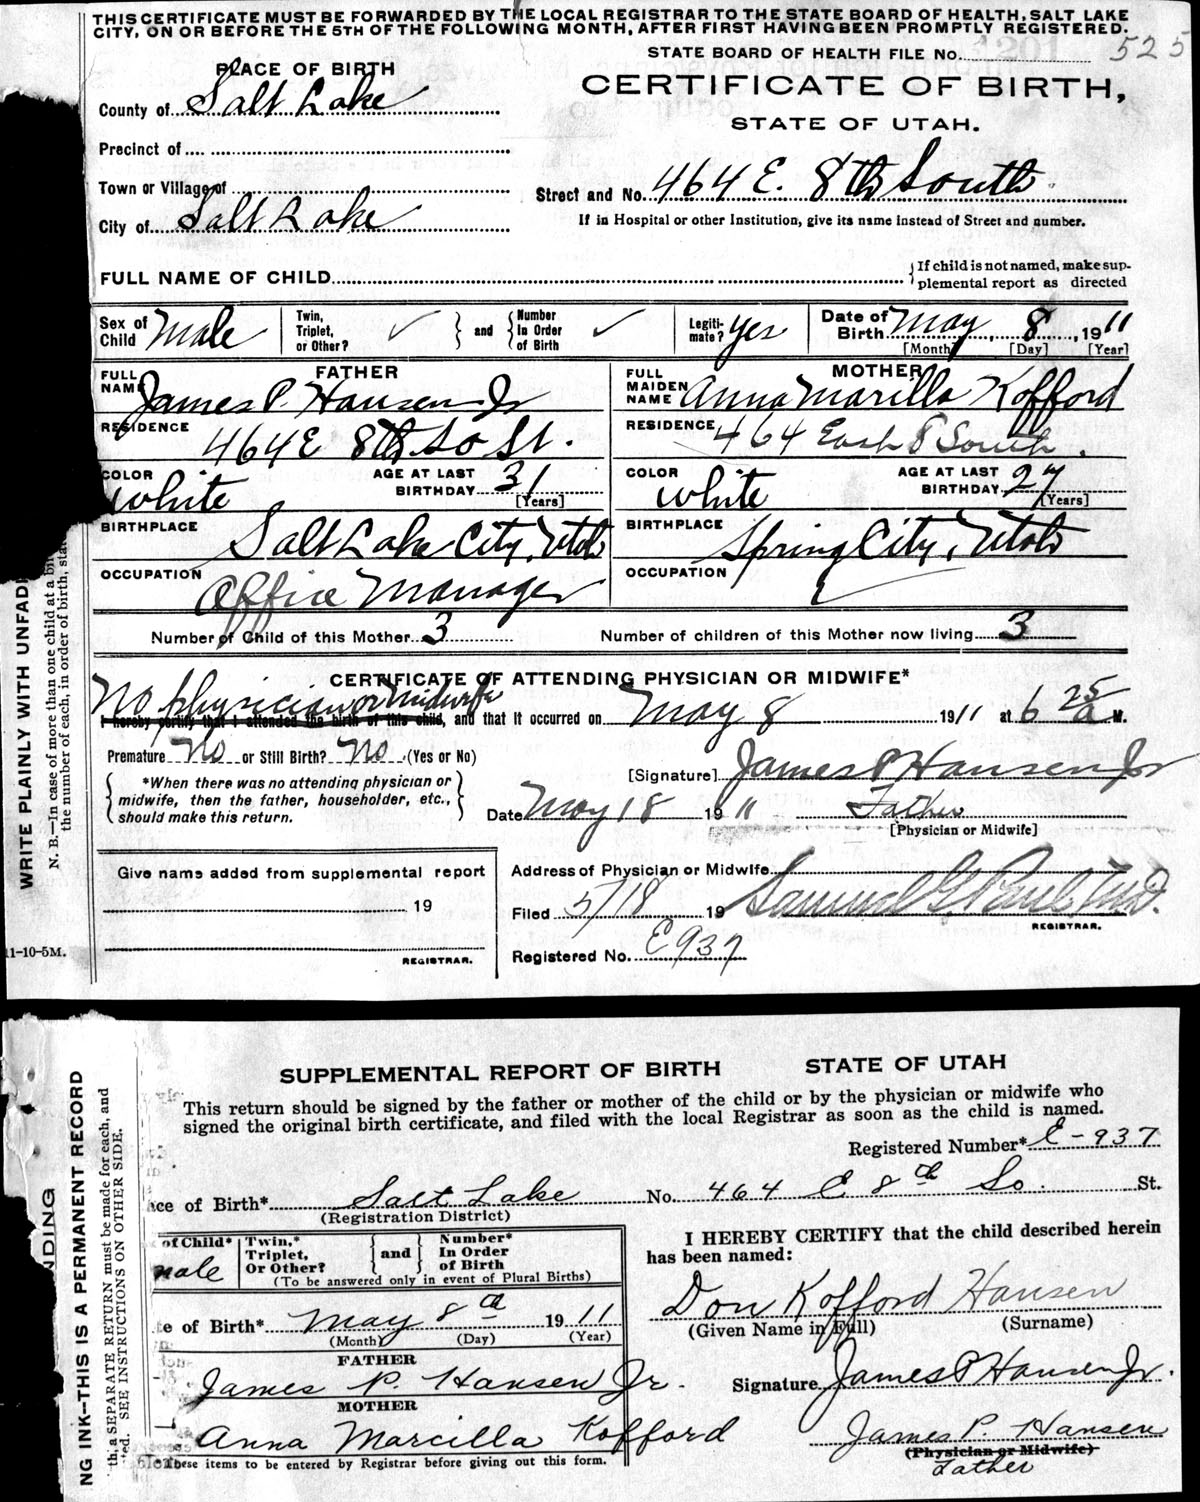 THIS CERTIFICATE MUST BE FORWARDED BY THE LOCAL REGISTRAR TO THE STATE BOARD OF HEALTH, SALT LAKE
CITY, ON OR BEFORE THE 5TH OF THE FOLLOWING MONTH, AFTER FIRST HAVING BEEN PROMPTLY REGISTERED.
STATE BOARD OF HEALTH FILE No. 525
PLACE OF BIRTH
CERTIFICATE OF BIRTH,
County of Salt Lake
STATE OF UTAH.
Precinct of
Town or Village of
Street and No. 464 E. 8th South
City of Salt Lake
If in Hospital or other Institution, give its name instead of Street and number.
FULL NAME OF CHILD
If child is not named, make sup-
plemental report as directed
Sex of Child Male
Twin, Triplet, or Other? ✓ and Number In Order of Birth ✓
Legiti- mate? yes
Date of Birth May 8, 1911
[Month] [Day] [Year]
FATHER
MOTHER
FULL NAME James P. Hansen Jr
FULL MAIDEN NAME Anna Marilla Kofford
RESIDENCE 464 E 8th So St.
RESIDENCE 464 East 8 South.
COLOR white AGE AT LAST BIRTHDAY 31 [Years]
COLOR white AGE AT LAST BIRTHDAY 27 [Years]
BIRTHPLACE Salt Lake City, Utah
BIRTHPLACE Spring City, Utah
OCCUPATION Office Manager
OCCUPATION
Number of Child of this Mother 3
Number of children of this Mother now living 3
CERTIFICATE OF ATTENDING PHYSICIAN OR MIDWIFE*
No physician or Midwife
I hereby certify that I attended the birth of this child, and that it occurred on May 8 1911 at 6 25 a M.
Premature No or Still Birth? No (Yes or No)
*When there was no attending physician or
midwife, then the father, householder, etc.,
should make this return.
[Signature] James P Hansen Jr
Date May 18 19 11 Father
[Physician or Midwife]
Give name added from supplemental report
19
REGISTRAR.
Address of Physician or Midwife
Filed 5/18 19 Samuel G. Paul M.D.
REGISTRAR.
Registered No. E937
WRITE PLAINLY WITH UNFADI
N. B.—In case of more than one child at a bi
the number of each, in order of birth, sta
11-10-5M.
SUPPLEMENTAL REPORT OF BIRTH STATE OF UTAH
This return should be signed by the father or mother of the child or by the physician or midwife who
signed the original birth certificate, and filed with the local Registrar as soon as the child is named.
Registered Number* E-937
ce of Birth* Salt Lake No. 464 E 8th So. St.
(Registration District)
of Child* male
Twin,* Triplet, Or Other? and Number* In Order of Birth
(To be answered only in event of Plural Births)
I HEREBY CERTIFY that the child described herein
has been named:
Don Kofford Hansen
(Given Name in Full) (Surname)
te of Birth* May 8th 1911
(Month) (Day) (Year)
FATHER
James P. Hansen Jr.
Signature James P Hansen Jr.
MOTHER
Anna Marcilla Kofford
James P. Hansen
(Physician or Midwife)
Father
These items to be entered by Registrar before giving out this form.
NG INK—THIS IS A PERMANENT RECORD
th, a SEPARATE RETURN must be made for each, and
ted. SEE INSTRUCTIONS ON OTHER SIDE.
NDING